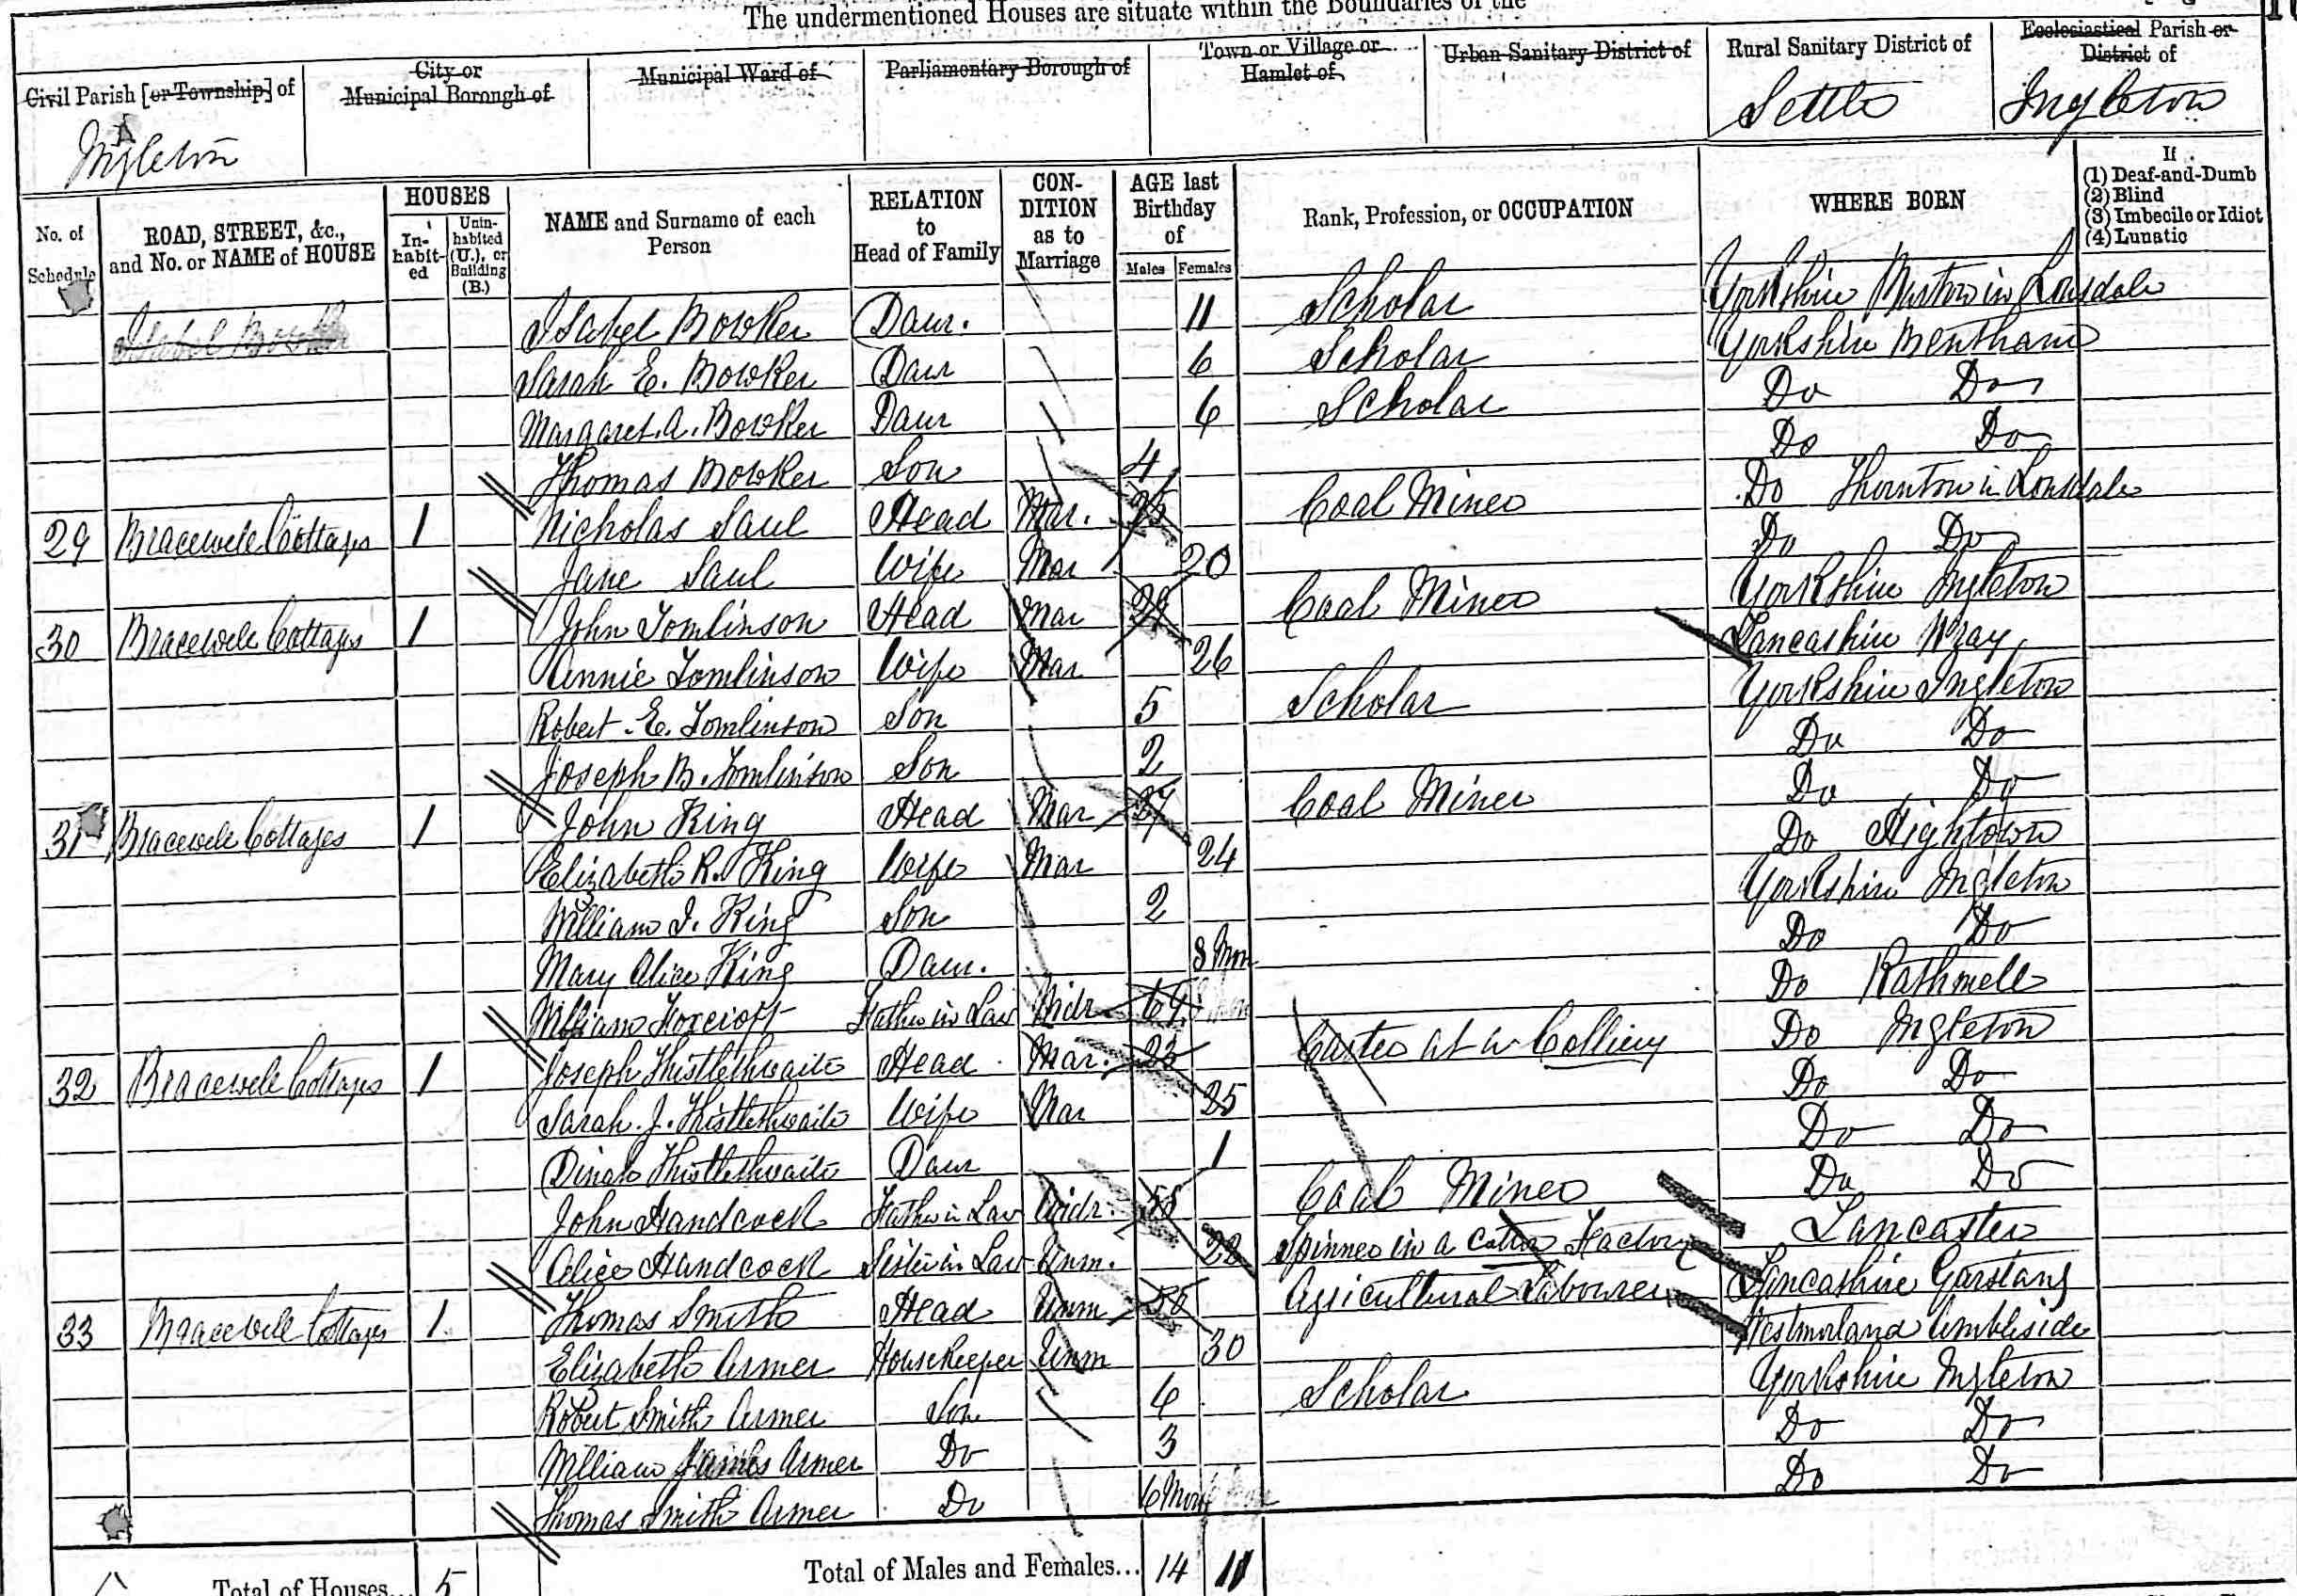 The undermentioned Houses are situate within the Boundaries of the
Civil Parish [or Township] of
City or Municipal Borough of
Municipal Ward of
Parliamentary Borough of
Town or Village or Hamlet of
Urban Sanitary District of
Rural Sanitary District of
Ecclesiastical Parish or District of
Ingleton Settle Ingleton
No. of Schedule
ROAD, STREET, &c., and No. or NAME of HOUSE
HOUSES
In-habit-ed
Unin-habited (U.), or Building (B.)
NAME and Surname of each Person
RELATION to Head of Family
CON-DITION as to Marriage
AGE last Birthday of
Males Females
Rank, Profession, or OCCUPATION
WHERE BORN
If
(1) Deaf-and-Dumb
(2) Blind
(3) Imbecile or Idiot
(4) Lunatic
Isabel Bowker Isabel Bowker Daur. 11 Scholar Yorkshire Burton in Lonsdale
Sarah E. Bowker Daur 6 Scholar Yorkshire Bentham
Margaret. A. Bowker Daur 6 Scholar Do Do
Thomas Bowker Son 4 Do Do
29 Bracewell Cottages 1 Nicholas Saul Head Mar. 25 Coal Miner Do Thornton in Lonsdale
Jane Saul Wife Mar 20 Do Do
30 Bracewell Cottages 1 John Tomlinson Head Mar Coal Miner Yorkshire Ingleton
Annie Tomlinson Wife Mar 26 Lancashire Wray
Robert. E. Tomlinson Son 5 Scholar Yorkshire Ingleton
Joseph B. Tomlinson Son 2 Do Do
31 Bracewell Cottages 1 John King Head Mar 27 Coal Miner Do Do
Elizabeth R. King Wife Mar 24 Do Hightown
William I. King Son 2 Yorkshire Ingleton
Mary Alice King Daur. 8 Mon Do Do
William Foxcroft Father in Law Widr 64 Do Rathmell
32 Bracewell Cottages 1 Joseph Thistlethwaite Head Mar. 23 Carter at a Colliery Do Ingleton
Sarah. J. Thistlethwaite Wife Mar 25 Do Do
Dinah Thistlethwaite Daur 1 Do Do
John Handcock Father in Law Widr. 58 Coal Miner Do Do
Alice Handcock Sister in Law Unm. Spinner in a Cotton Factory Lancaster
33 Bracewell Cottages 1 Thomas Smith Head Unm Agricultural Labourer Lancashire Garstang
Elizabeth Armer Housekeeper Unm 30 Westmorland Ambleside
Robert Smith Armer Son 6 Scholar Yorkshire Ingleton
William James Armer Do 3 Do Do
Thomas Smith Armer Do 6 Mon Do Do
Total of Houses... 5 Total of Males and Females... 14 11